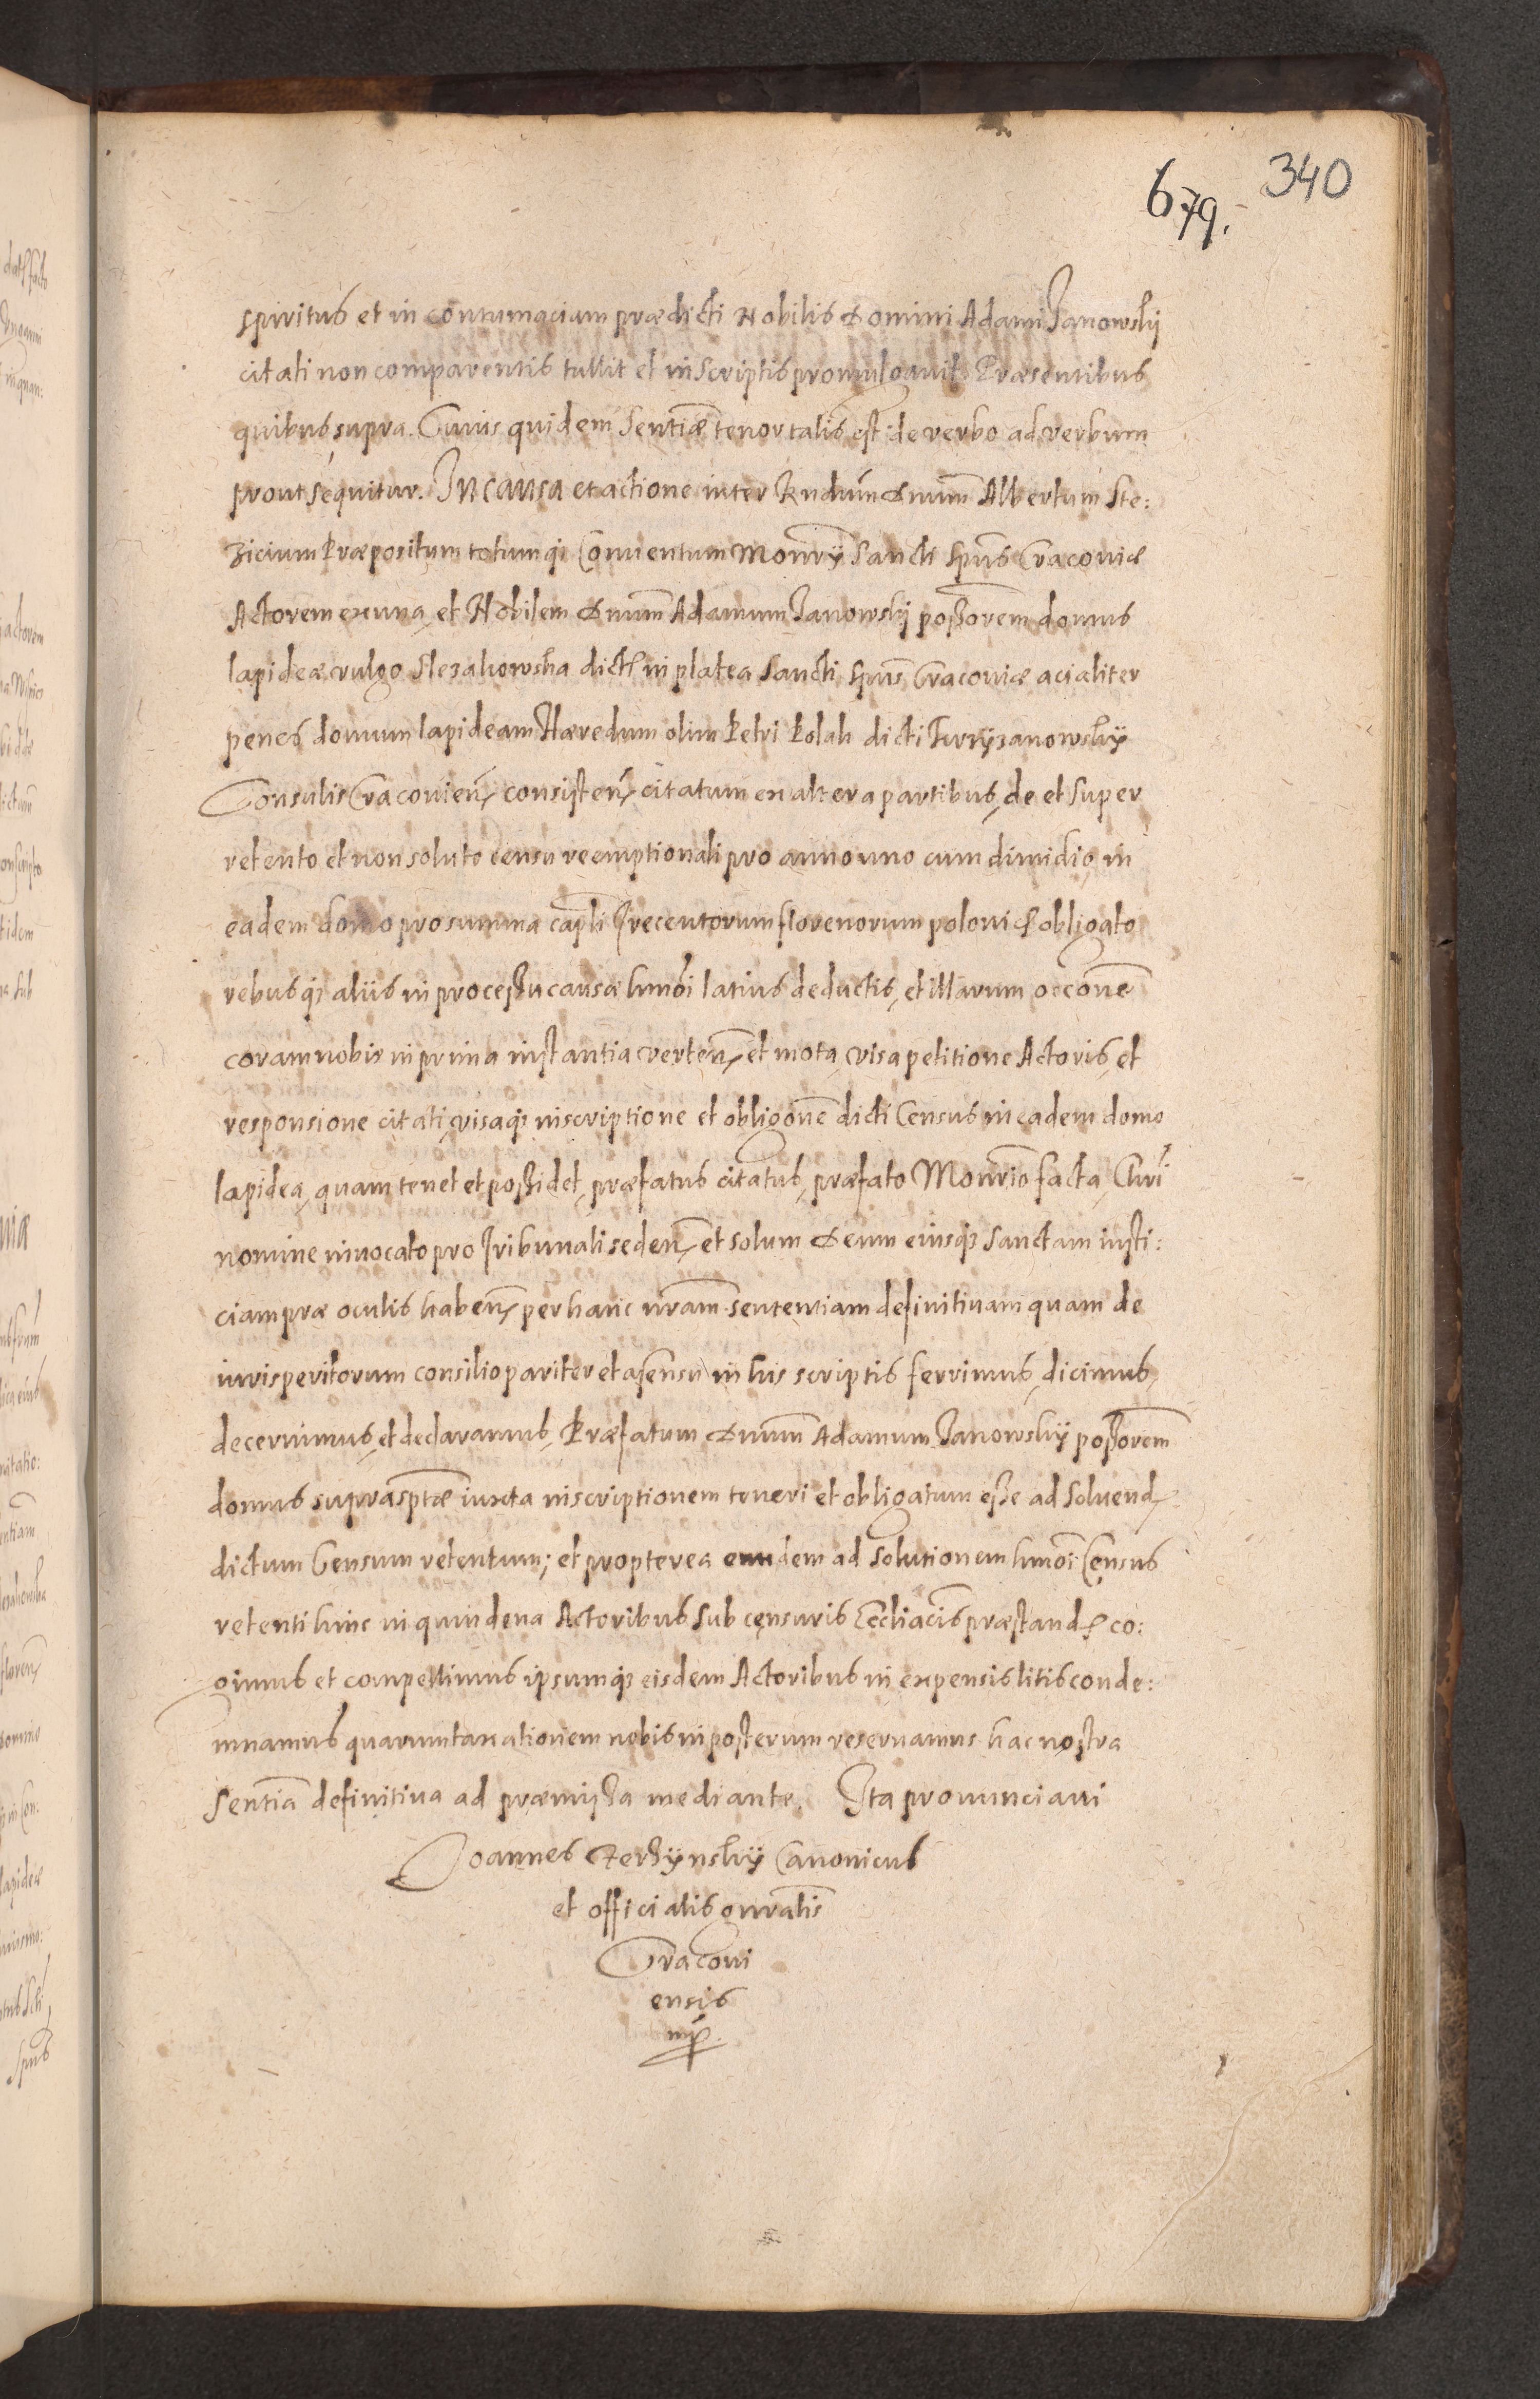 679. 340
spiritus et in contumaciam prædicti Nobilis Domini Adami Janowskij
citati non comparentis tullit et in scriptis promulgauit. Præsentibus
quibus supra. Cuius quidem Sentiæ tenor talis est de verbo ad verbum
prout sequitur. In causa et actione inter Rndum Dnum Albertum Ste:
zicium Præpositum totumq; Conuentum Monrÿ Sancti Spus Cracouiæ
Actorem ex una, et Nobilem Dnum Adamum Janowskij possorem domus
lapideæ vulgo Slezakowska dictę in platea Sancti Spus Cracouiæ acialiter
penes domum lapideam Hæredum olim Petri Polak dicti
Consulis Cracouien, consisten, citatum ex altera partibus, de et super
retento et non soluto censu reemptionali pro anno uno cum dimidio, in
eadem domo pro summa capli Trecentorum florenorum poloni obligato
rebusq; aliis in processu causæ hmoi latius deductis, et illarum occone
coram nobis in prima instantia verten, et mota, visa petitione Actoris, et
responsione citati, visaq; inscriptione et obligone dicti Census in eadem domo
lapidea, quam tenet et possidet, præfatus citatus, præfato Monrio facta, Chri
nomine inuocato pro Tribunali seden, et solum Deum eiusq; Sanctam iusti:
ciam præ oculis haben, per hanc nram sententiam definitiuam quam de
iurisperitorum consilio pariter et assensu in his scriptis ferrimus, dicimus,
decernimus, et declaramus, Præfatum Dnum Adamum Janowskÿ possorem
domus suprasptæ iuxta inscriptionem teneri et obligatum esse ad soluend,
dictum Censum retentum; et propterea eundem ad solutionem hmoi Census
retenti hinc in quindena Actoribus sub censuris Ecclīacis præstand, co:
gimus et compellimus ipsumq; eisdem Actoribus in expensis litis conde:
mnamus quarum taxationem nobis in posterum reseruamus hac nostra
Sentia definitiua ad præmissa mediante. Ita pronunciaui
Joannes Canonicus
et officialis gnralis
Cracoui
ensis
mp.